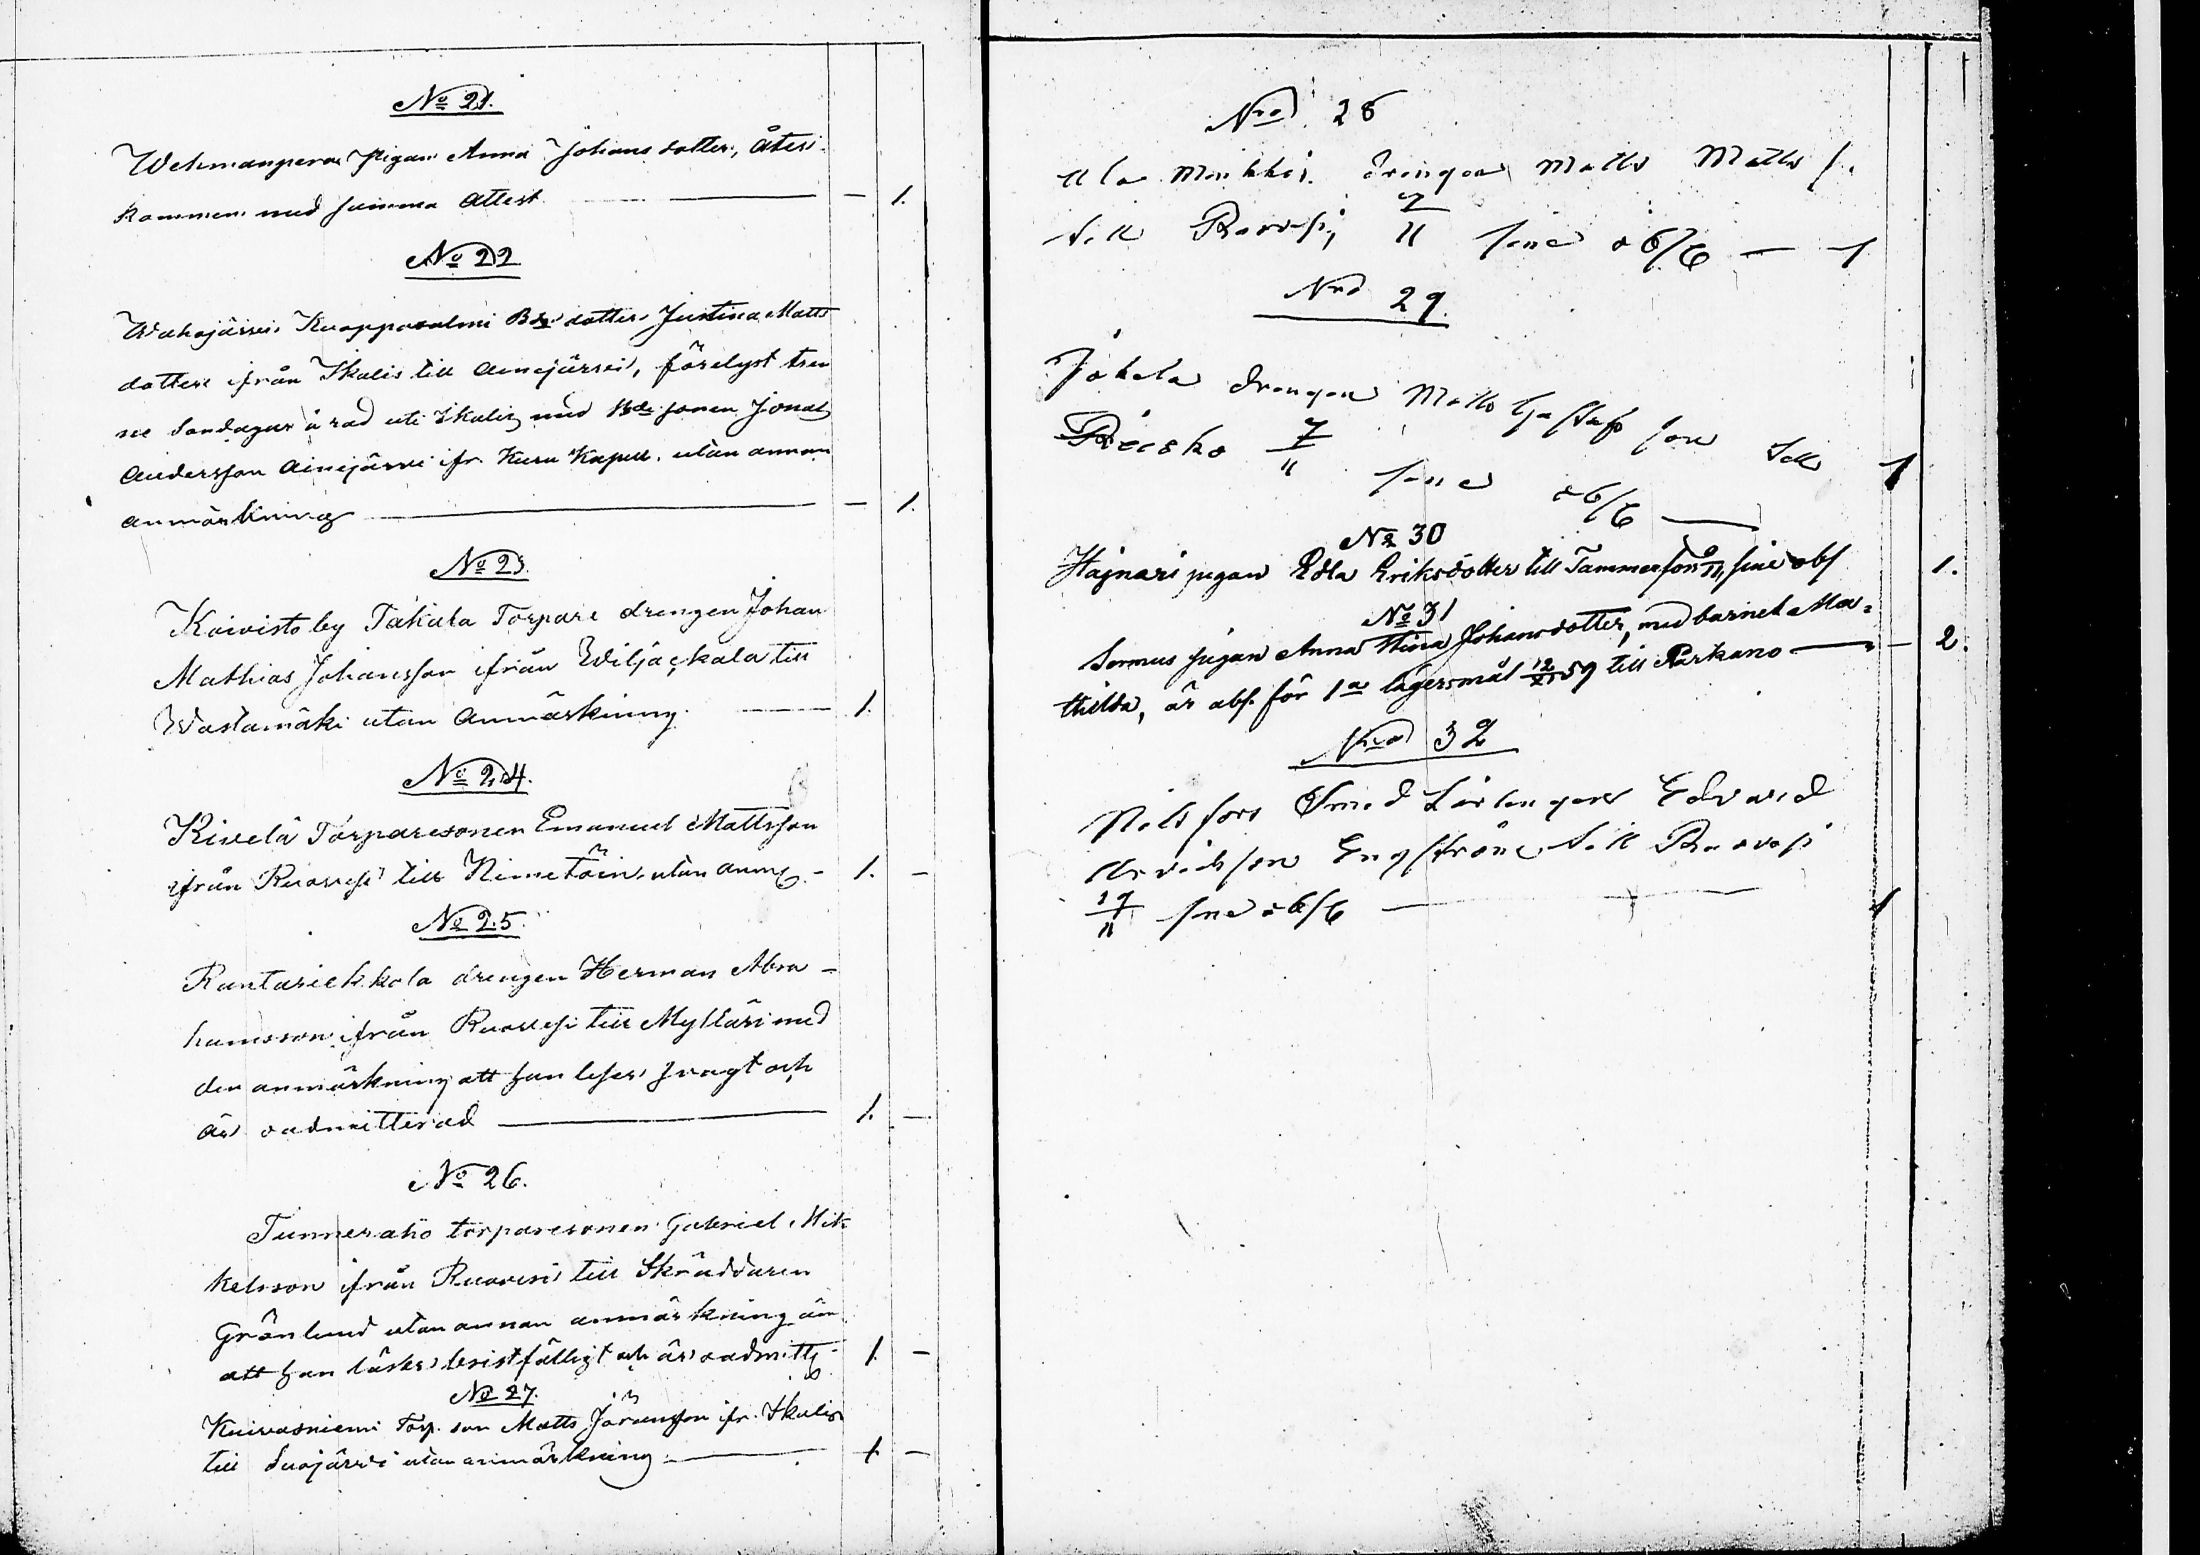 No 21.
Wehmanperä Pigan Anna Johansdotter, åter-
kommen med samma attest — — 1.
No 22
Wahojärvi Kuoppasalmi Bde dotter Justina Matts
dotter ifrån Ikalis till Ainejärvi, förelyst tren
ne Söndagar å rad uti Ikalis med Bde sonen Jonas
Andersson Ainejärvi ifr. Kuru Kapell. utan annan
anmärkning — — 1.
No 23.
Koivisto by Takala Torpare drengen Johan
Mathias Johansson ifrån Wiljakkala till
Wastamäki utan Anmärkning. — 1.
No 24.
Kivelä Torparesonen Emanuel Mattsson
ifrån Ruovesi till Nimetöin utan anmg. - 1. -
No 25.
Rantariekkola drengen Herman Abra-
hamsson ifrån Ruovesi till Mylläri med
den anmärkning att han leser svagt och
är oadmitterad — 1. —
No 26.
Tunneraho torparesonen Gabriel Mik
kelsson ifrån Ruovesi till Skräddaren
Grönlund utan annan anmärkning än
att han läser bristfälligt och är oadmittg 1. -
No 27.
Kuivasniemi Torp. son Matts Göransson ifr. Ikalis
till Suojärvi utan anmärkning. — 1 -
Nro 28
Ala drengen Matts Matts s.
till Ruovesi 7/11 sine obs — 1
Nro 29.
Jokela drengen Matts Gustafsson till
7/11 sine obs — 1
No 30
Hajnari pigan Edla Eriksdotter till Tammerfors 9/11, sine obs 1.
No 31
Sormus pigan Anna Stina Johansdotter, med barnet Ma-
thilda, är abs. för 1a lägersmål 12/2 59 till Parkano — - 2.
Nro 32
Smed Lärlingen Edvard
Engström till Ruovesi
19/11 sine obs — 1